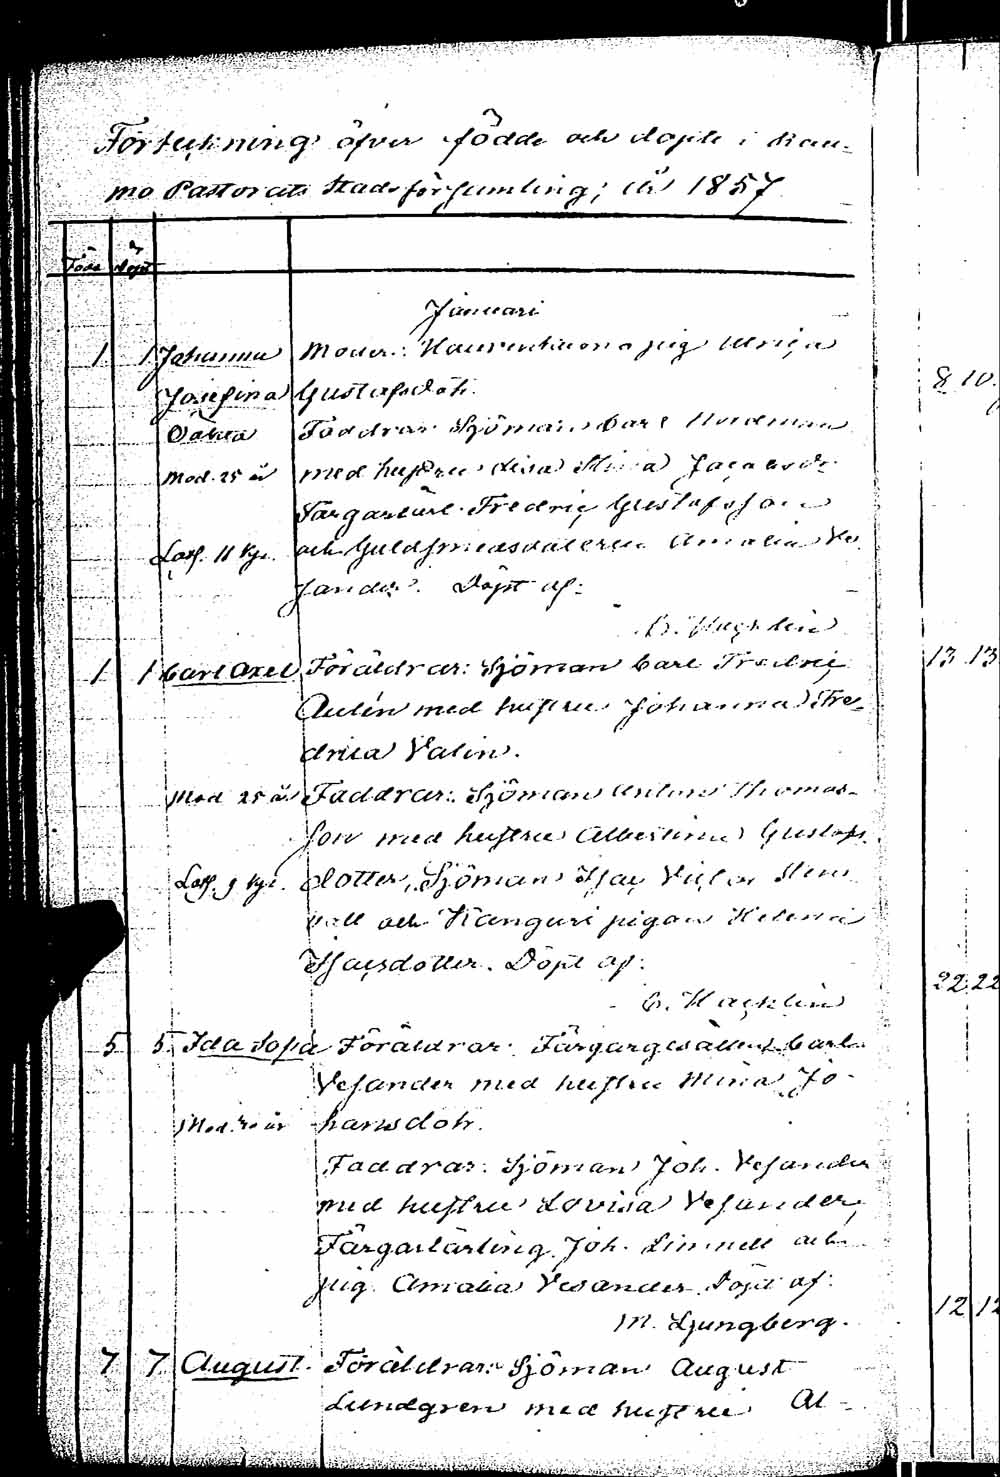 Förteckning öfver födde och döpte i Rau-
mo Pastorats Stadsförsamling, år 1857
Född döpt
Januari
1 1 Johanna Moder: pig Ulrica
Josefina Gustafsdotr.
Faddrar Sjöman Carl Nordman
Mod. 25 år med hustru Lisa Stina
Färgarlärl. Fredric Gustafsson
11 och Amalia Ve-
sander. Döpt af:
Hacklin
1 1 Carl Axel Föräldrar: Sjöman Carl Fredric
Aulén med hustru Johanna Fre-
drica Valin.
Mod 25 år Faddrar: Sjöman Anton Thomas-
son med hustru Albertina Gustafs-
9 dotter, Sjöman Isac Victor
och pigan Helena
Isacsdotter. Döpt af:
Hacklin
5 5 Ida Sofia Föräldrar: Färgargesällen Carl
Vesander med hustru Mina Jo-
Mod. år hansdotr.
Faddrar: Sjöman Joh. Vesander
med hustru Lovisa Vesander,
Färgarlärling Joh. Linnell och
pig. Amalia Vesander. Döpt af:
M. Ljungberg.
7 7 August. Föräldrar: Sjöman August
Lundgren med hustru Al-
8 10
13 13
22 22
12 12